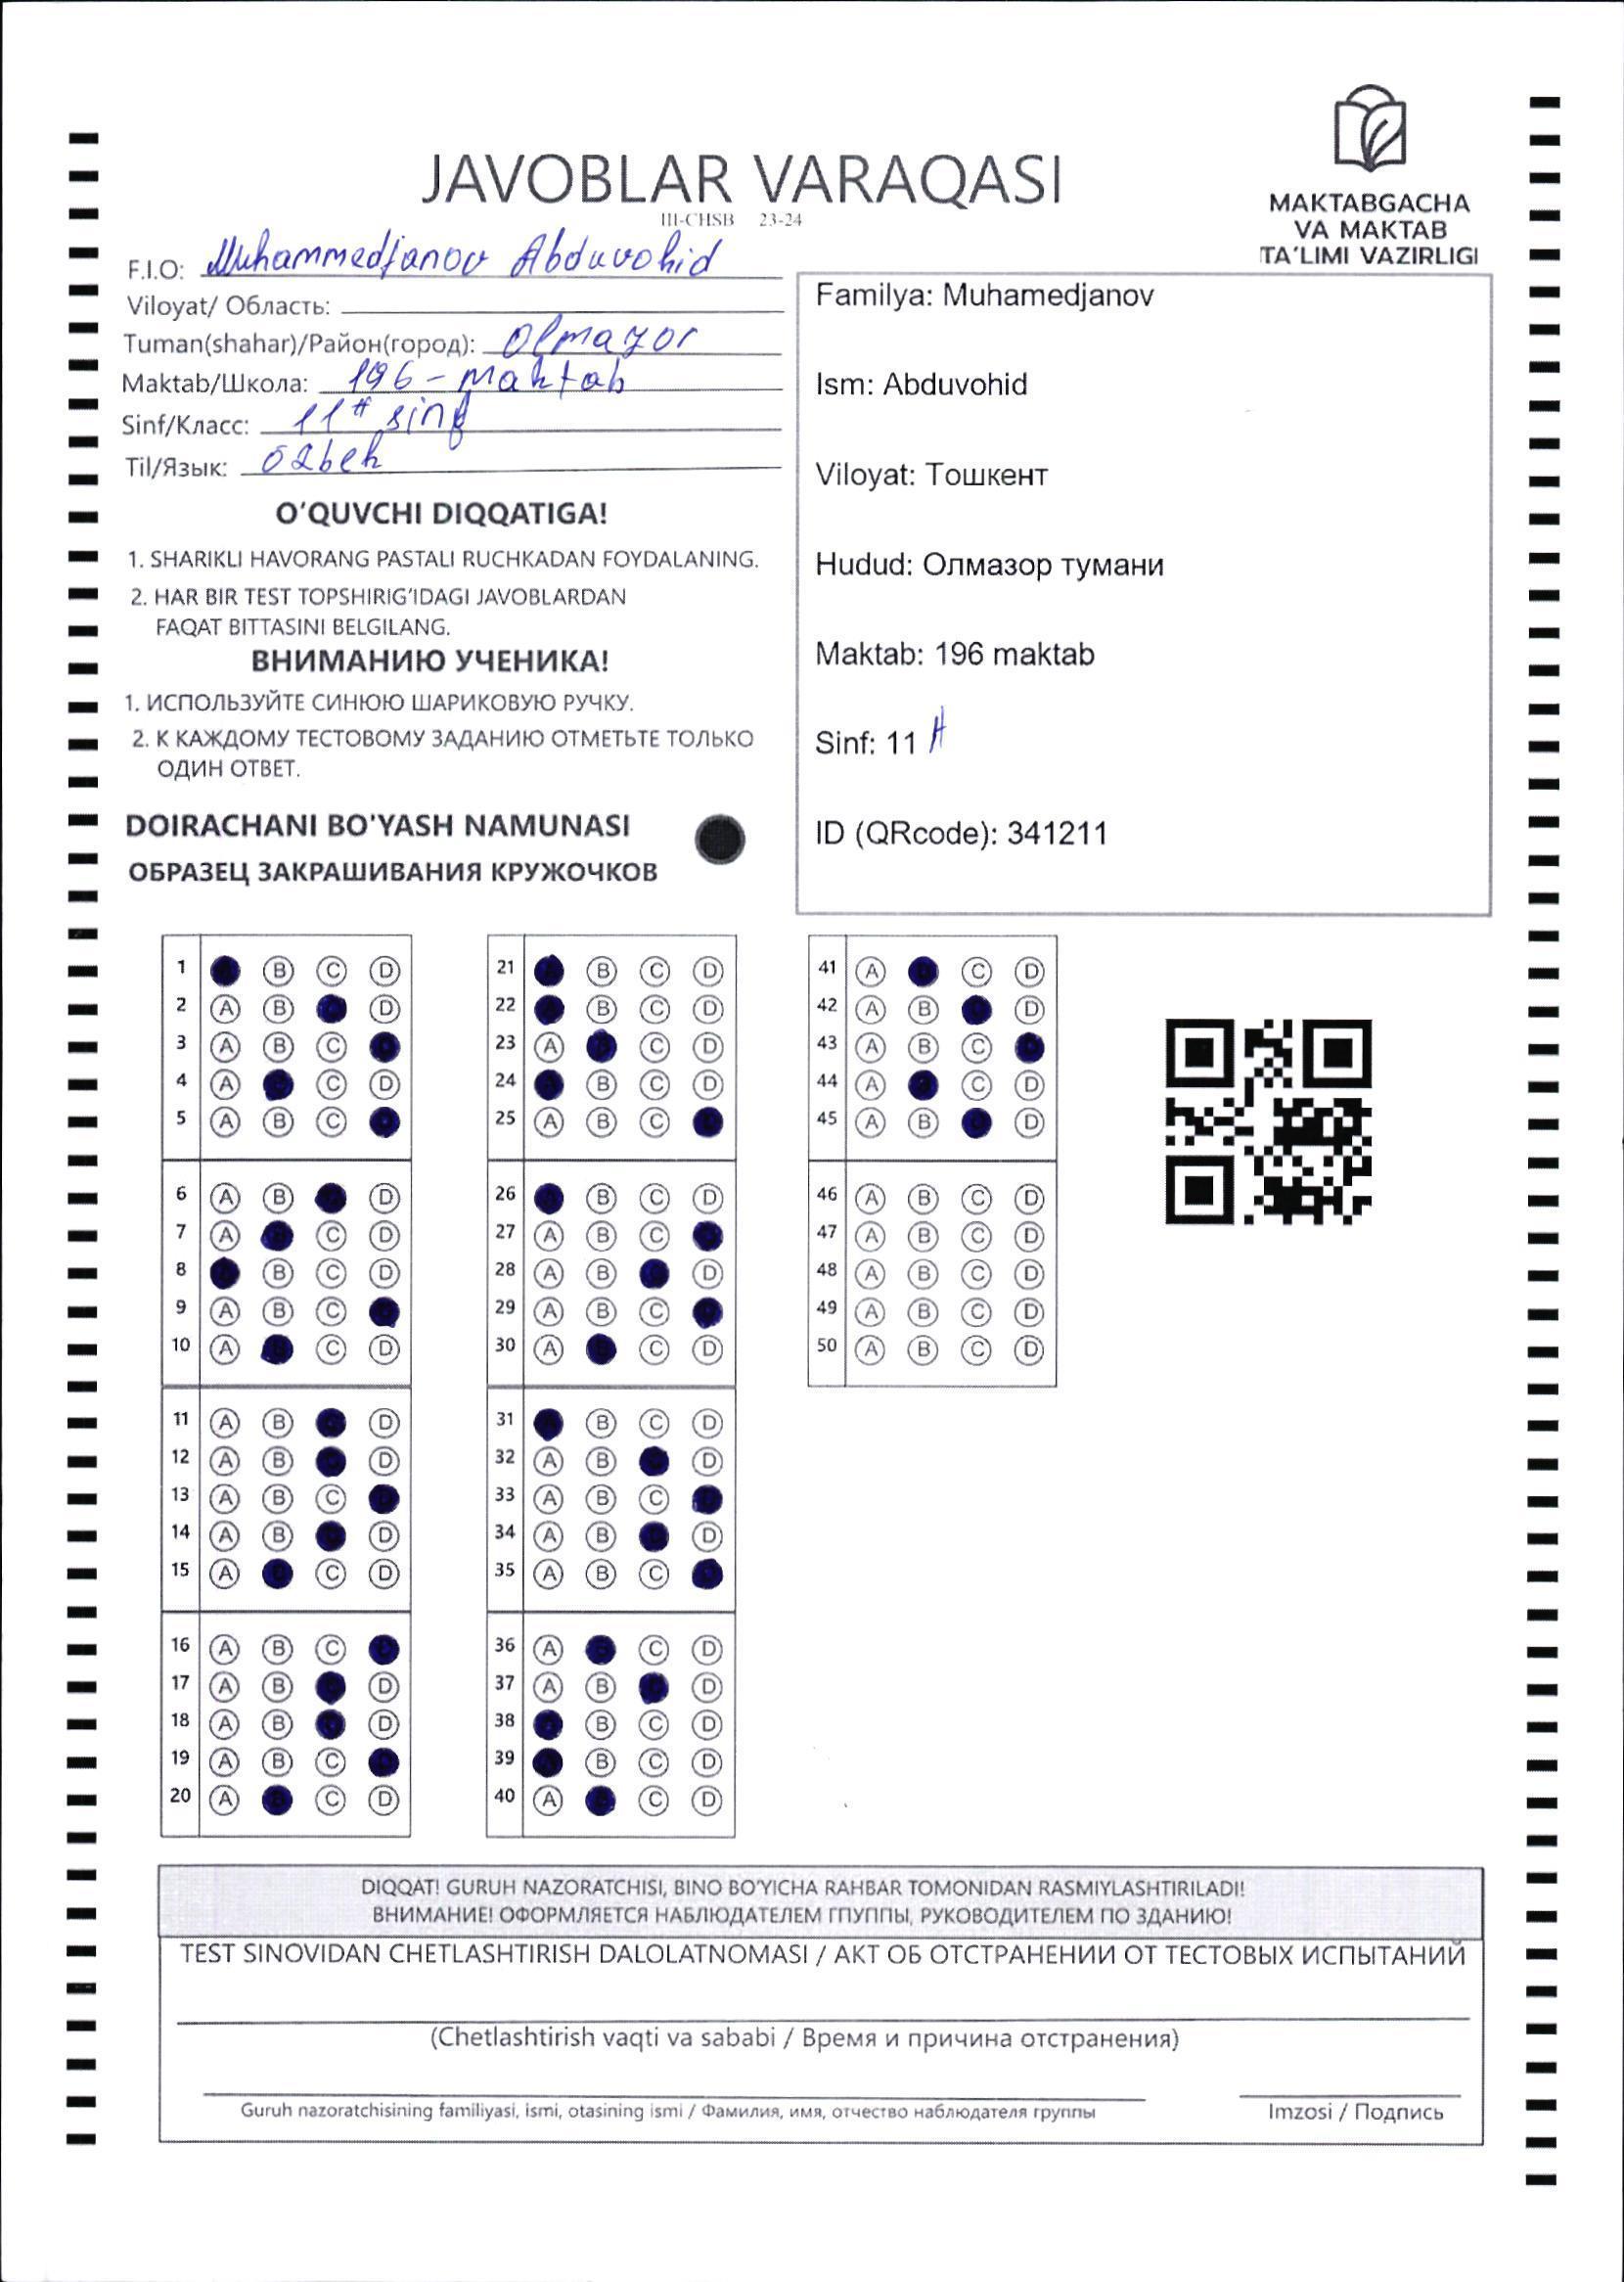 JAVOBLAR VARAQASI
III-CHSB 23-24
MAKTABGACHA
VA MAKTAB
TA'LIMI VAZIRLIGI
F.I.O: Muhammedjanov Abduvohid
Viloyat/ Область:
Tuman(shahar)/Район(город): Olmazor
Maktab/Школа: 196-maktab
Sinf/Класс: 11 sinf
Til/Язык: o'zbek
O'QUVCHI DIQQATIGA!
1. SHARIKLI HAVORANG PASTALI RUCHKADAN FOYDALANING.
2. HAR BIR TEST TOPSHIRIG'IDAGI JAVOBLARDAN
FAQAT BITTASINI BELGILANG.
ВНИМАНИЮ УЧЕНИКА!
1. ИСПОЛЬЗУЙТЕ СИНЮЮ ШАРИКОВУЮ РУЧКУ.
2. К КАЖДОМУ ТЕСТОВОМУ ЗАДАНИЮ ОТМЕТЬТЕ ТОЛЬКО
ОДИН ОТВЕТ.
DOIRACHANI BO'YASH NAMUNASI
ОБРАЗЕЦ ЗАКРАШИВАНИЯ КРУЖОЧКОВ
Familya: Muhamedjanov
Ism: Abduvohid
Viloyat: Тошкент
Hudud: Олмазор тумани
Maktab: 196 maktab
Sinf: 11 A
ID (QRcode): 341211
1 B C D
2 A B D
3 A B C
4 A C D
5 A B C
6 A B D
7 A C D
8 B C D
9 A B C
10 A C D
11 A B D
12 A B D
13 A B C
14 A B D
15 A C D
16 A B C
17 A B D
18 A B D
19 A B C
20 A C D
21 B C D
22 B C D
23 A C D
24 B C D
25 A B C
26 B C D
27 A B C
28 A B D
29 A B C
30 A C D
31 B C D
32 A B D
33 A B C
34 A B D
35 A B C
36 A C D
37 A B D
38 B C D
39 B C D
40 A C D
41 A C D
42 A B D
43 A B C
44 A C D
45 A B D
46 A B C D
47 A B C D
48 A B C D
49 A B C D
50 A B C D
DIQQAT! GURUH NAZORATCHISI, BINO BO'YICHA RAHBAR TOMONIDAN RASMIYLASHTIRILADI!
ВНИМАНИЕ! ОФОРМЛЯЕТСЯ НАБЛЮДАТЕЛЕМ ГПУППЫ, РУКОВОДИТЕЛЕМ ПО ЗДАНИЮ!
TEST SINOVIDAN CHETLASHTIRISH DALOLATNOMASI / АКТ ОБ ОТСТРАНЕНИИ ОТ ТЕСТОВЫХ ИСПЫТАНИЙ
(Chetlashtirish vaqti va sababi / Время и причина отстранения)
Guruh nazoratchisining familiyasi, ismi, otasining ismi / Фамилия, имя, отчество наблюдателя группы
Imzosi / Подпись